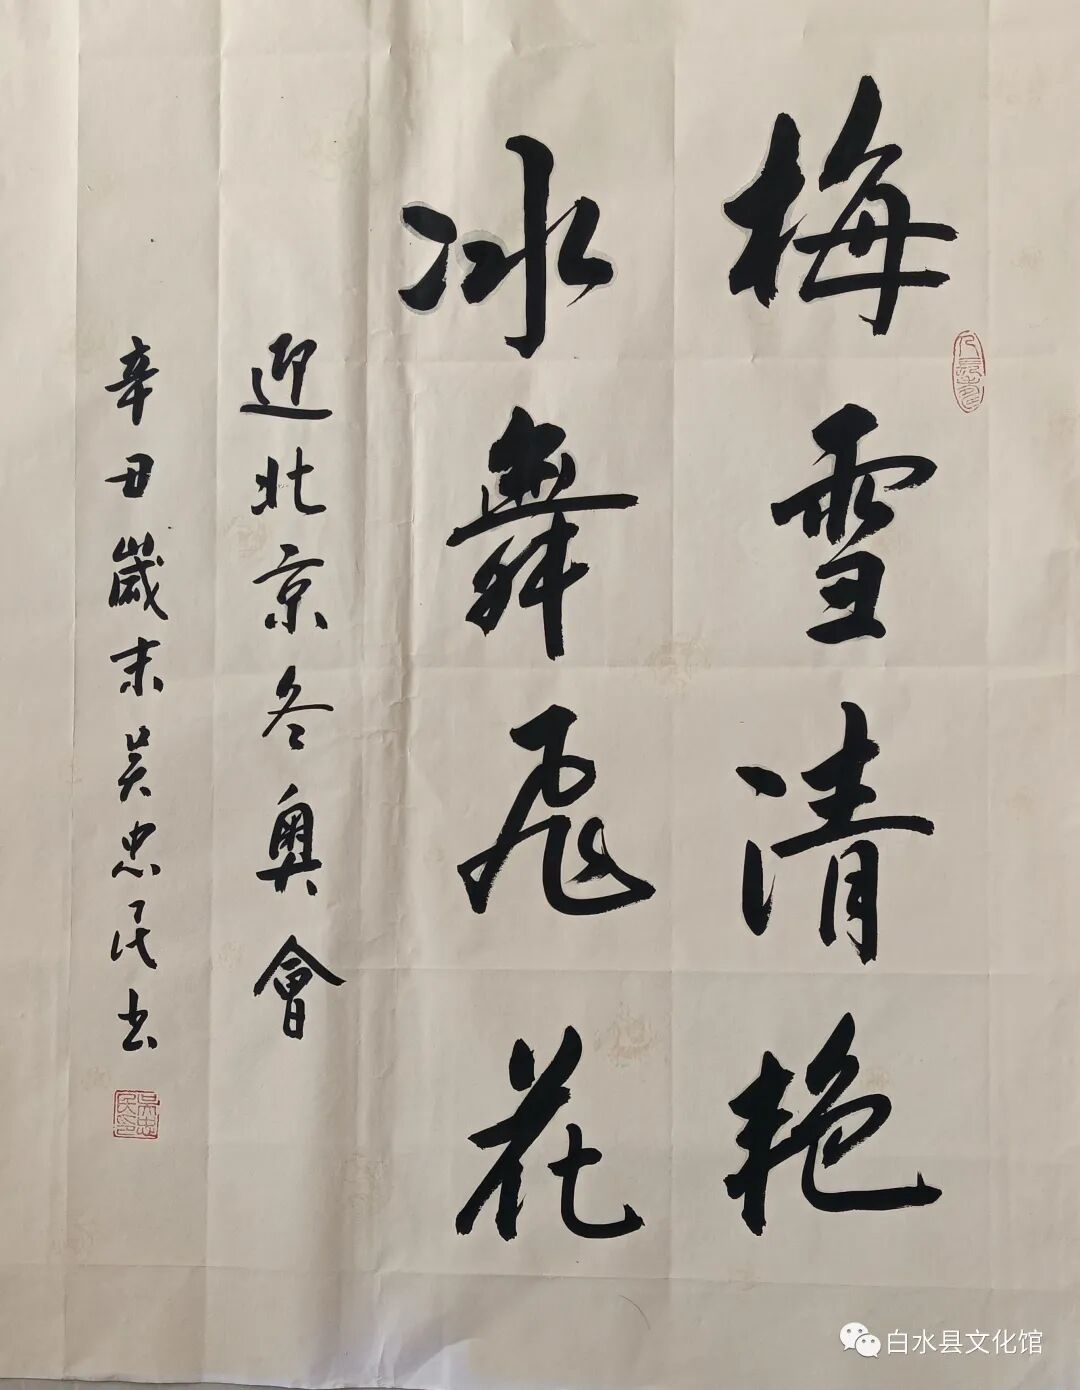 梅雪清艳
冰舞飛花
迎北京冬奥會
辛丑歲末吴忠民书
吴忠民印
白水县文化馆